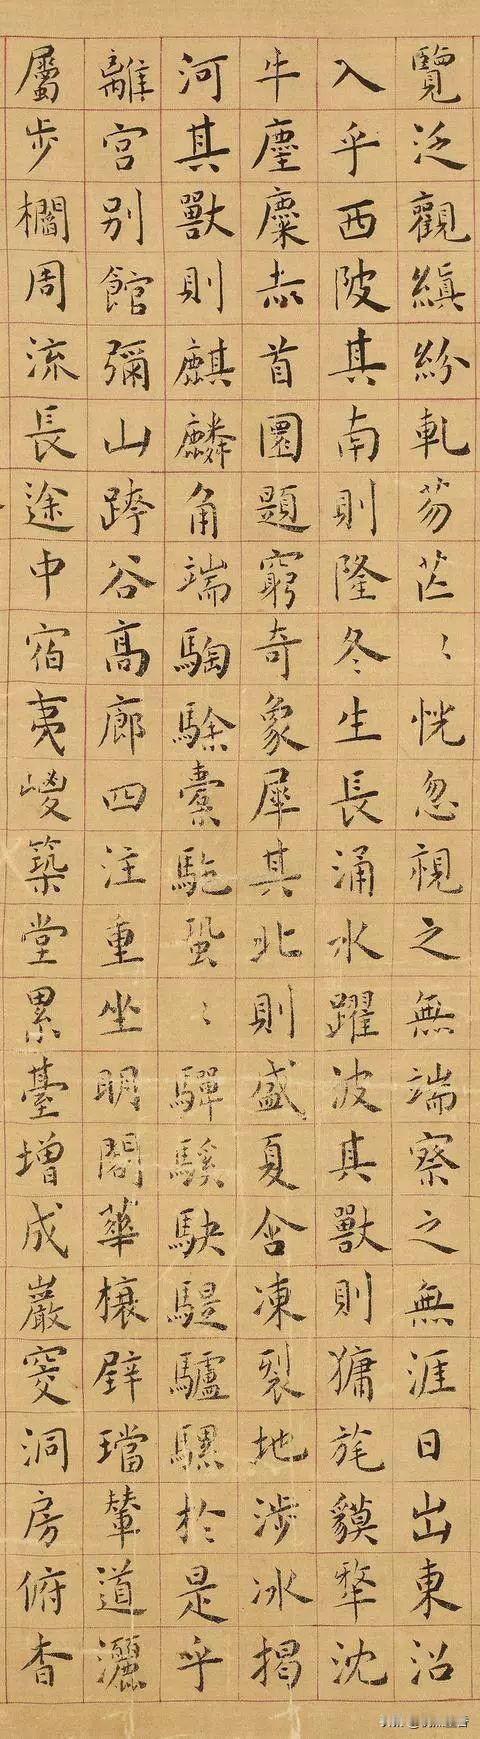 覽泛觀縝紛軋芴芒〻恍忽視之無端察之無涯日出東沼
入乎西陂其南則隆冬生長涌水躍波其獸則㺎旄貘犛沈
牛麈麋赤首圜題窮奇象犀其北則盛夏含凍裂地涉冰揭
河其獸則麒麟角端騊駼橐駞蛩〻驒騱駃騠驢騾於是乎
離宮別館彌山跨谷高廊四注重坐明閣華榱璧璫輦道灑
屬步櫩周流長途中宿夷嵕築堂累臺增成巖窔洞房俯杳